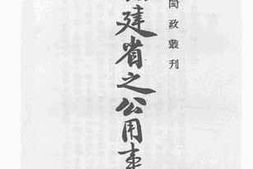 閩政叢刊
建省之公用事